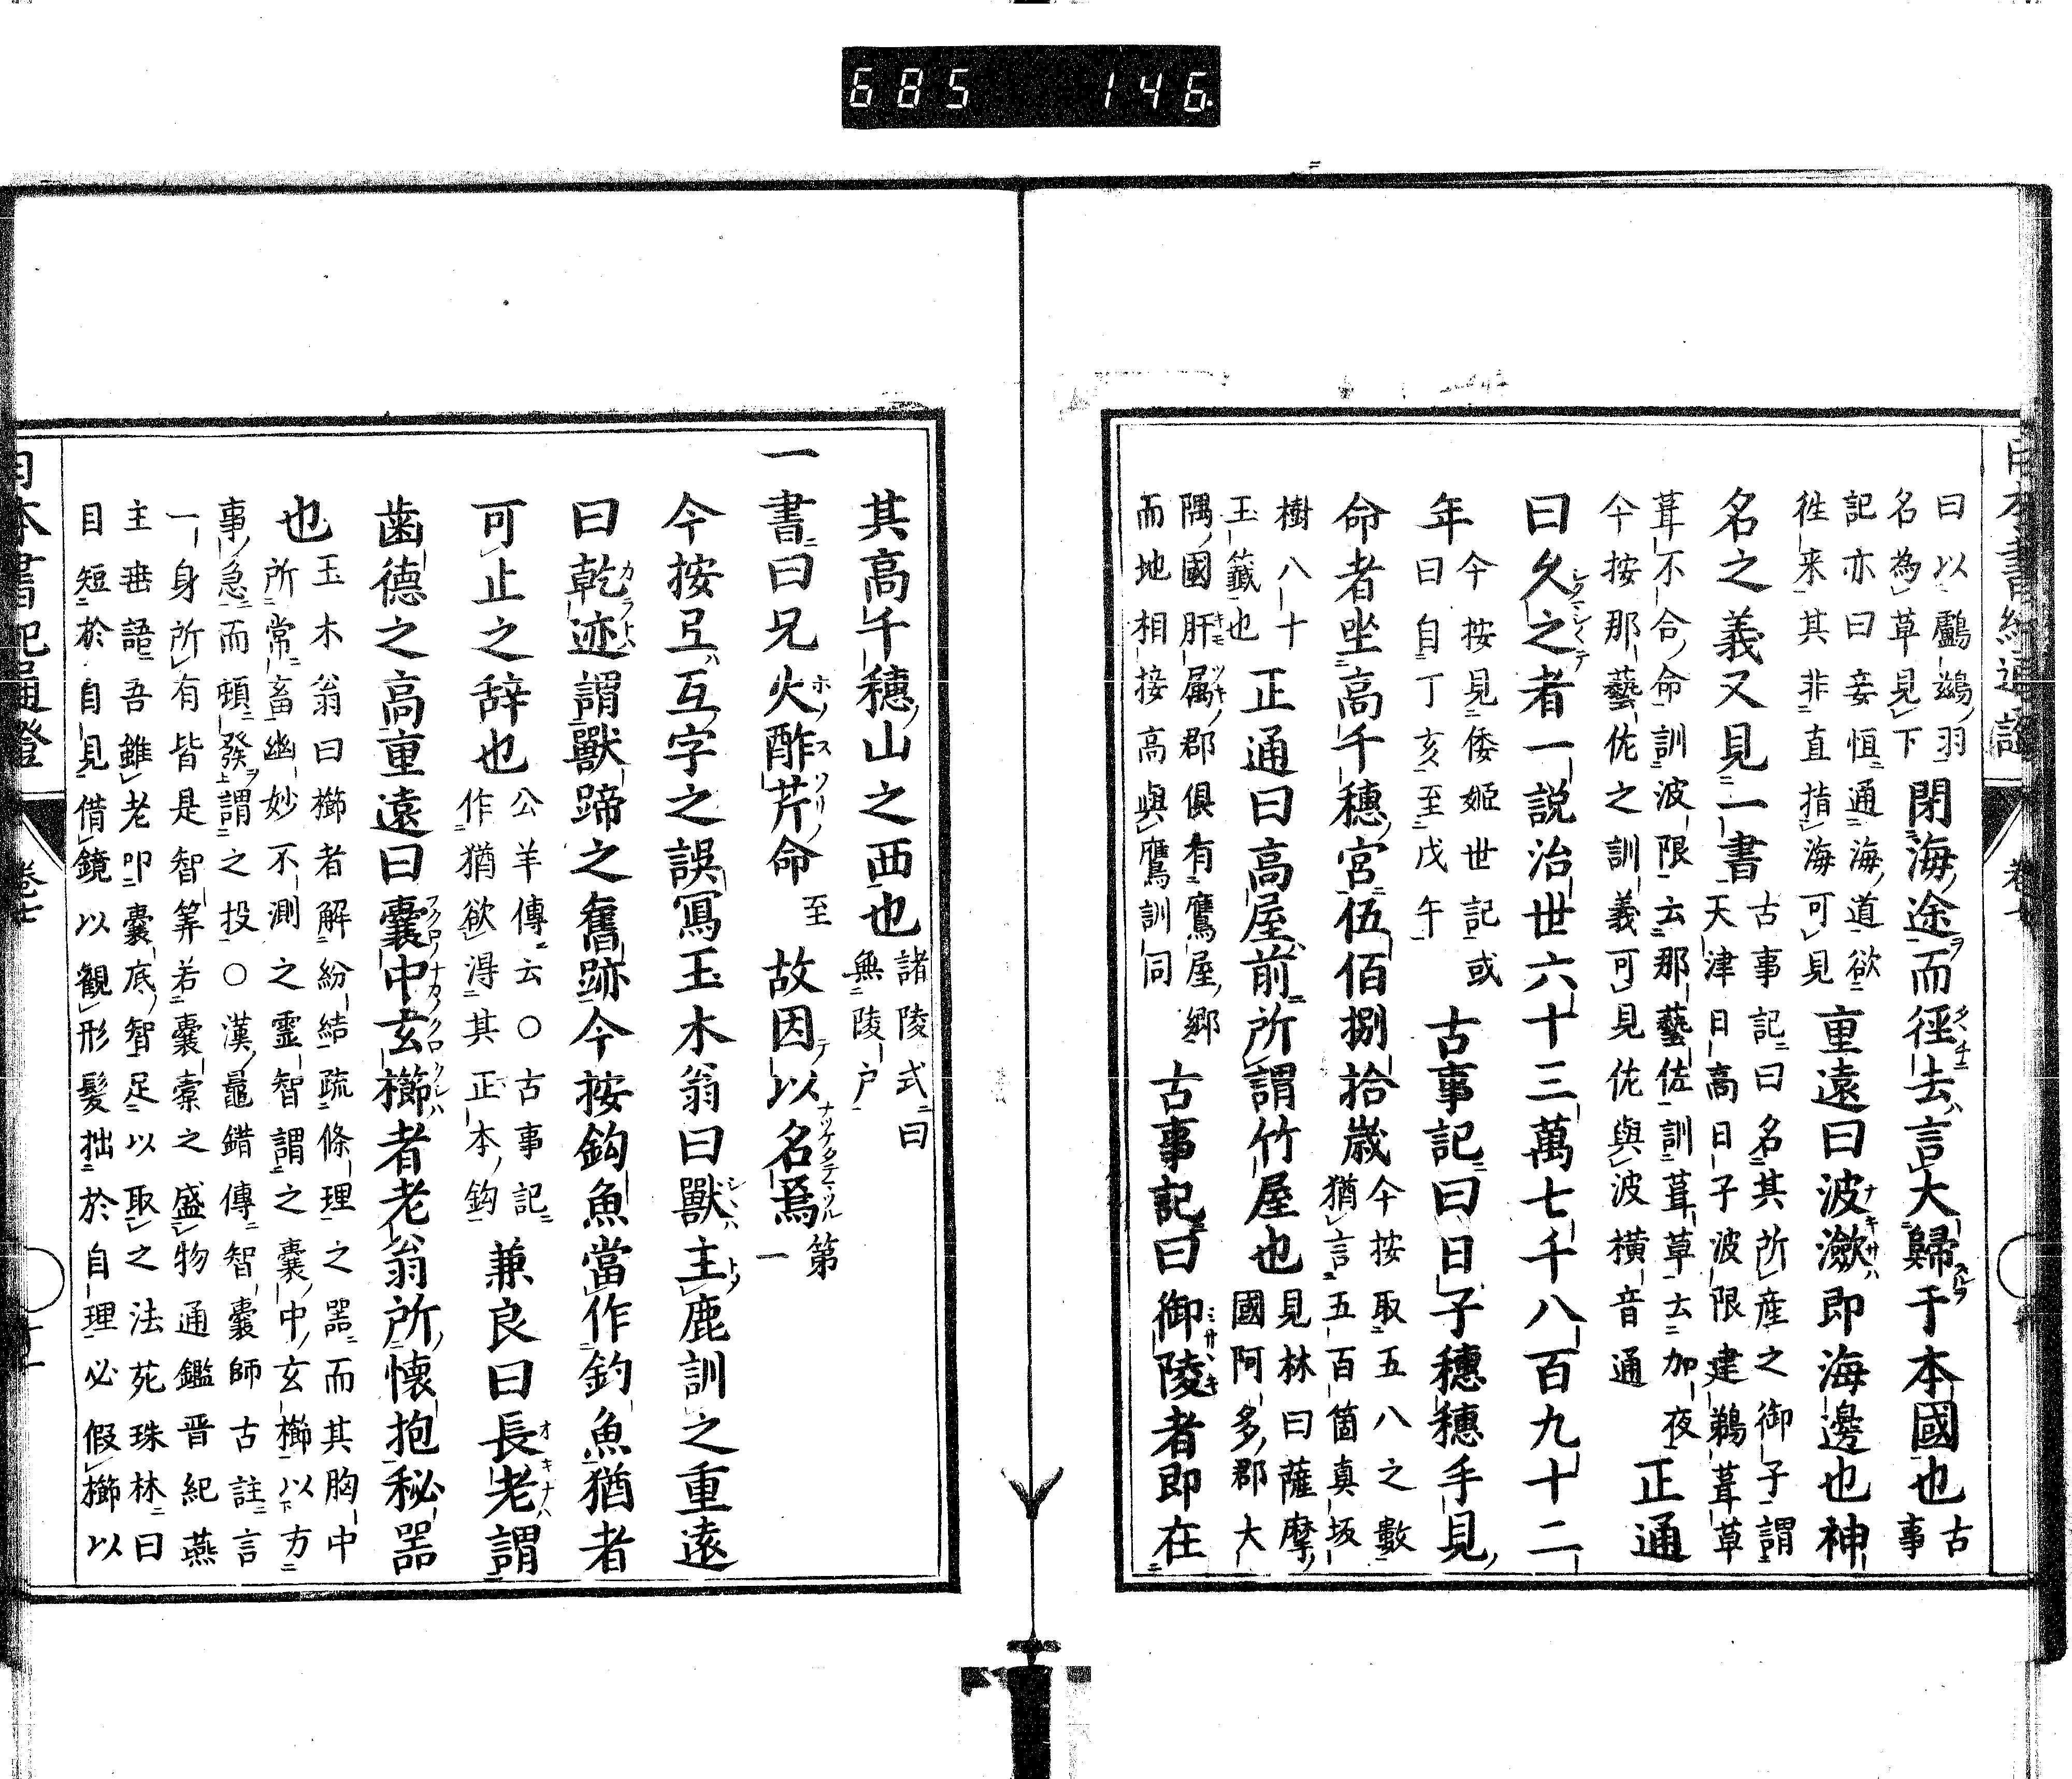 685 146
曰以鸕鷀羽
名為草見下
閉海途而徑去言大歸于本國也
古
事
記亦曰妾恒通海道欲
徃来其非直指海可見
重遠曰波瀲即海邊也神
名之義又見一書
古事記曰名其所産之御子謂
天津日高日子波限建鵜葺草
葺不合命訓波限云那藝佐訓葺草云加夜
今按那藝佐之訓義可見佐與波横音通
正通
曰久之者一説治世六十三萬七千八百九十二
年
今按見倭姬世記或
曰自丁亥至戊午
古事記曰日子穗穗手見
命者坐高千穗宮伍佰捌拾歳
今按取五八之數
猶言五百箇真坂
樹八十
玉籤也
正通曰高屋前所謂竹屋也
見林曰薩摩
國阿多郡大
隅國肝属郡俱有鷹屋郷
而地相接高與鷹訓同
古事記曰御陵者即在
其高千穗山之西也
諸陵式曰
無陵戸
一書曰兄火酢芹命
至
故因以名焉
第
一
今按弖互字之誤寫玉木翁曰獸主鹿訓之重遠
曰乾迹謂獸蹄之舊跡今按鈎魚當作釣魚猶者
可止之辞也
公羊傳云○古事記
作猶欲淂其正本鈎
兼良曰長老謂
歯德之高重遠曰嚢中玄櫛者老翁所懐抱秘器
也
玉木翁曰櫛者解紛結疏條理之器而其胸中
所常畜幽妙不測之霊智謂之嚢中玄櫛以方
事急而頓發謂之投○漢鼂錯傳智嚢師古註言
一身所有皆是智筭若嚢橐之盛物通鑑晋紀燕
主垂語吾雖老叩嚢底智足以取之法苑珠林曰
目短於自見借鏡以観形髪拙於自理必假櫛以
日本書紀通證
卷七